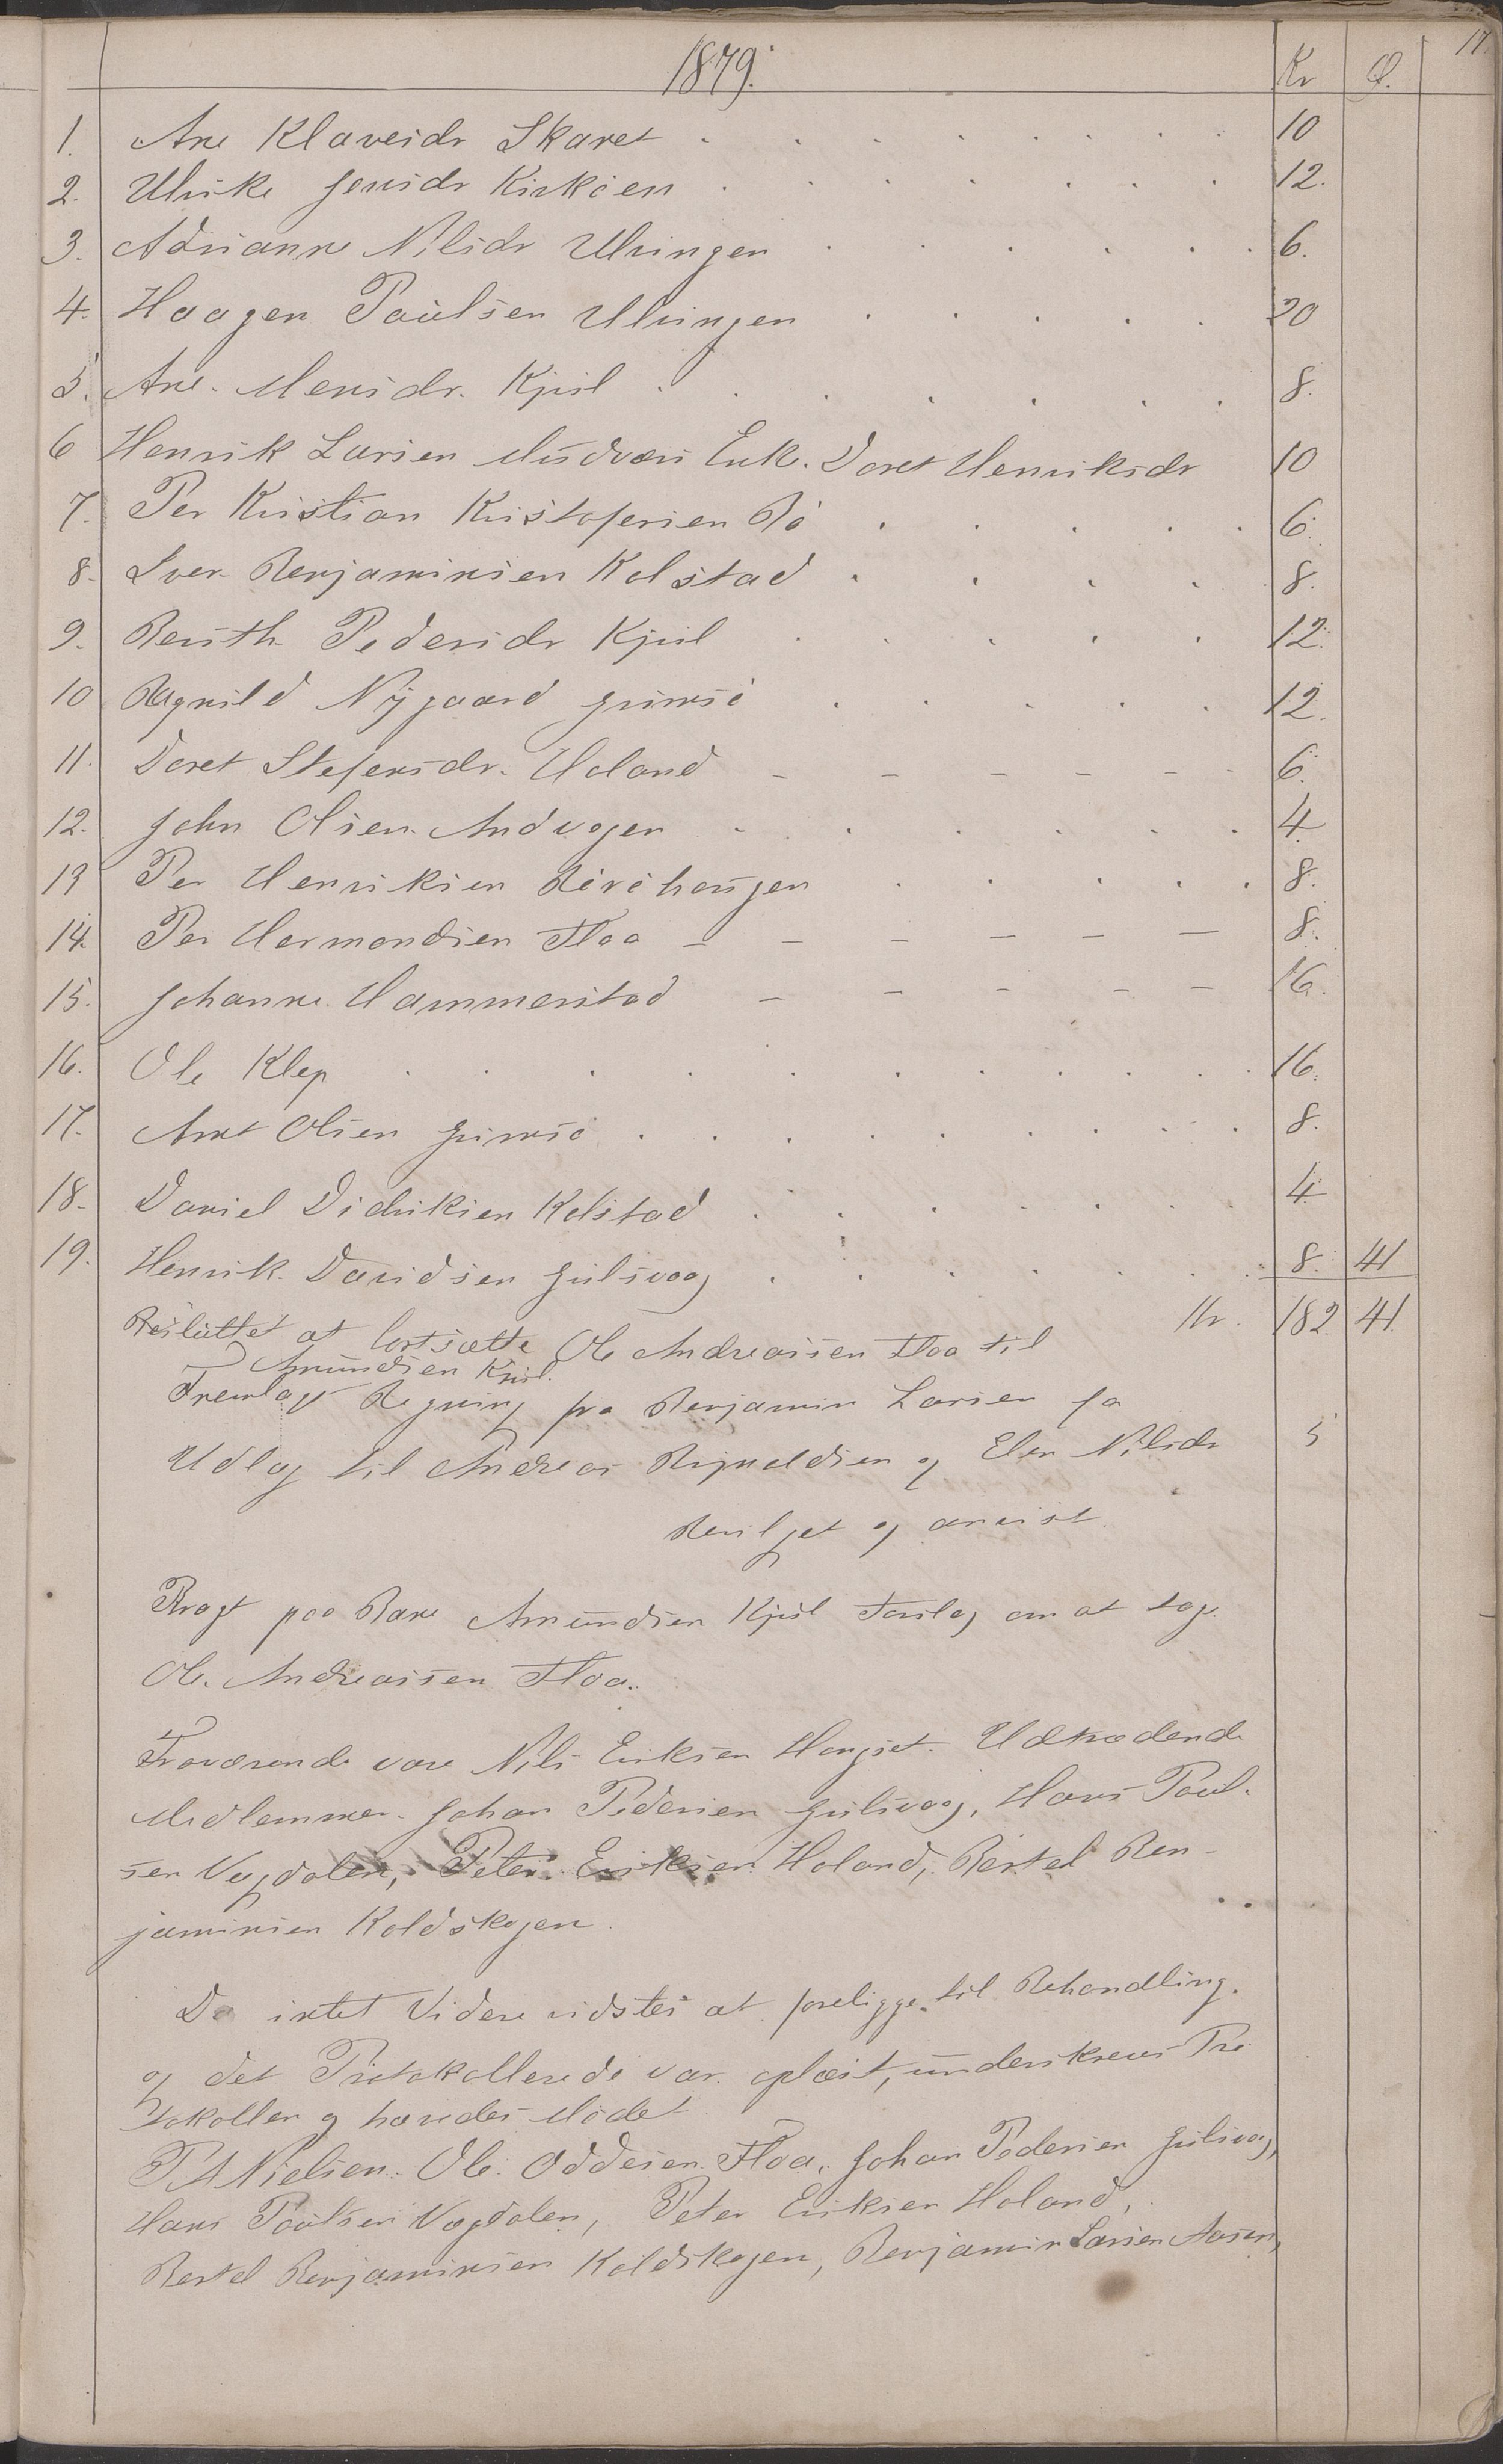 17.
1879. Kr Ø.
1. Ane Klaveidr Skaret . . . . . . . 10
2. Ulrike Jensdr Kirköen . . . . . . 12.
3. Adrianne Nilsdr Ulvingen . . . . . . 6.
4. Haagen Paulsen Ulvingen . . . . . 20
5. Ane Mensdr. Kjul . . . . . . . 8.
6 Henrik Larsen Mudvæs Enke. Doret Henriksdr 10
7. Per Kristian Kristofersen Rö . . . . . 6.
8. Iver Benjaminsen Kolstad . . . . . 8.
9. Beuth Pedersdr Kjul . . . . . 12.
10 Ragnild Nÿgaard Jurnsö . . . . . 12.
11. Doret Stefensdr. Holand - - - - - - 6.
12. John Olsen Andvagen . . . . . . 4.
13 Per Henriksen Röröhaugen . . . . . 8.
14. Per Hermandsen Floa - - - - - - 8.
15. Johanne Hammerstad - - - - - 16.
16. Ole Klep . . . . . . . . . . 16.
17. Arnt Olsen Jurnsö . . . . . . . . 8.
18. Daniel Didriksen Kolstad . . . . . . 4
19. Henrik Davidsen Julsvog . . . . . . 8. 41
Kr. 182 41.
Besluttet at bortsætte Ole Andreassen Floa til
Amundsen Kjul.
Fremlagt Regning fra Benjamin Larsen for
Udlæg til Andreas Reinaldsen og Elen Nilsdr 5
Bevilget og anvist.
Bragt paa Bane Amundsen Kjul Forslag om at tage
Ole Andreassen Floa.
Fraværende vare Nils Eriksen Hongset. Udtrædende
Medlemmer Johan Pedersen Julsvog, Hans Paul-
sen Vegdalen, Peter Eriksen Holand, Bertel Ben-
jaminsen Koldskogen.
Da intet Videre vidstes at foreligge til Behandling.
og det Protokollerede var oplæst, underskrevs Pro
tokollen og hævedes Mödet
P A Nielsen. Ole Oddesen Floa. Johan Pedersen Julsvog,
Hans Paulsen Vegdalen, Peter Eriksen Holand,
Bertel Benjaminsen Koldskogen, Benjamin Larsen Aasen,